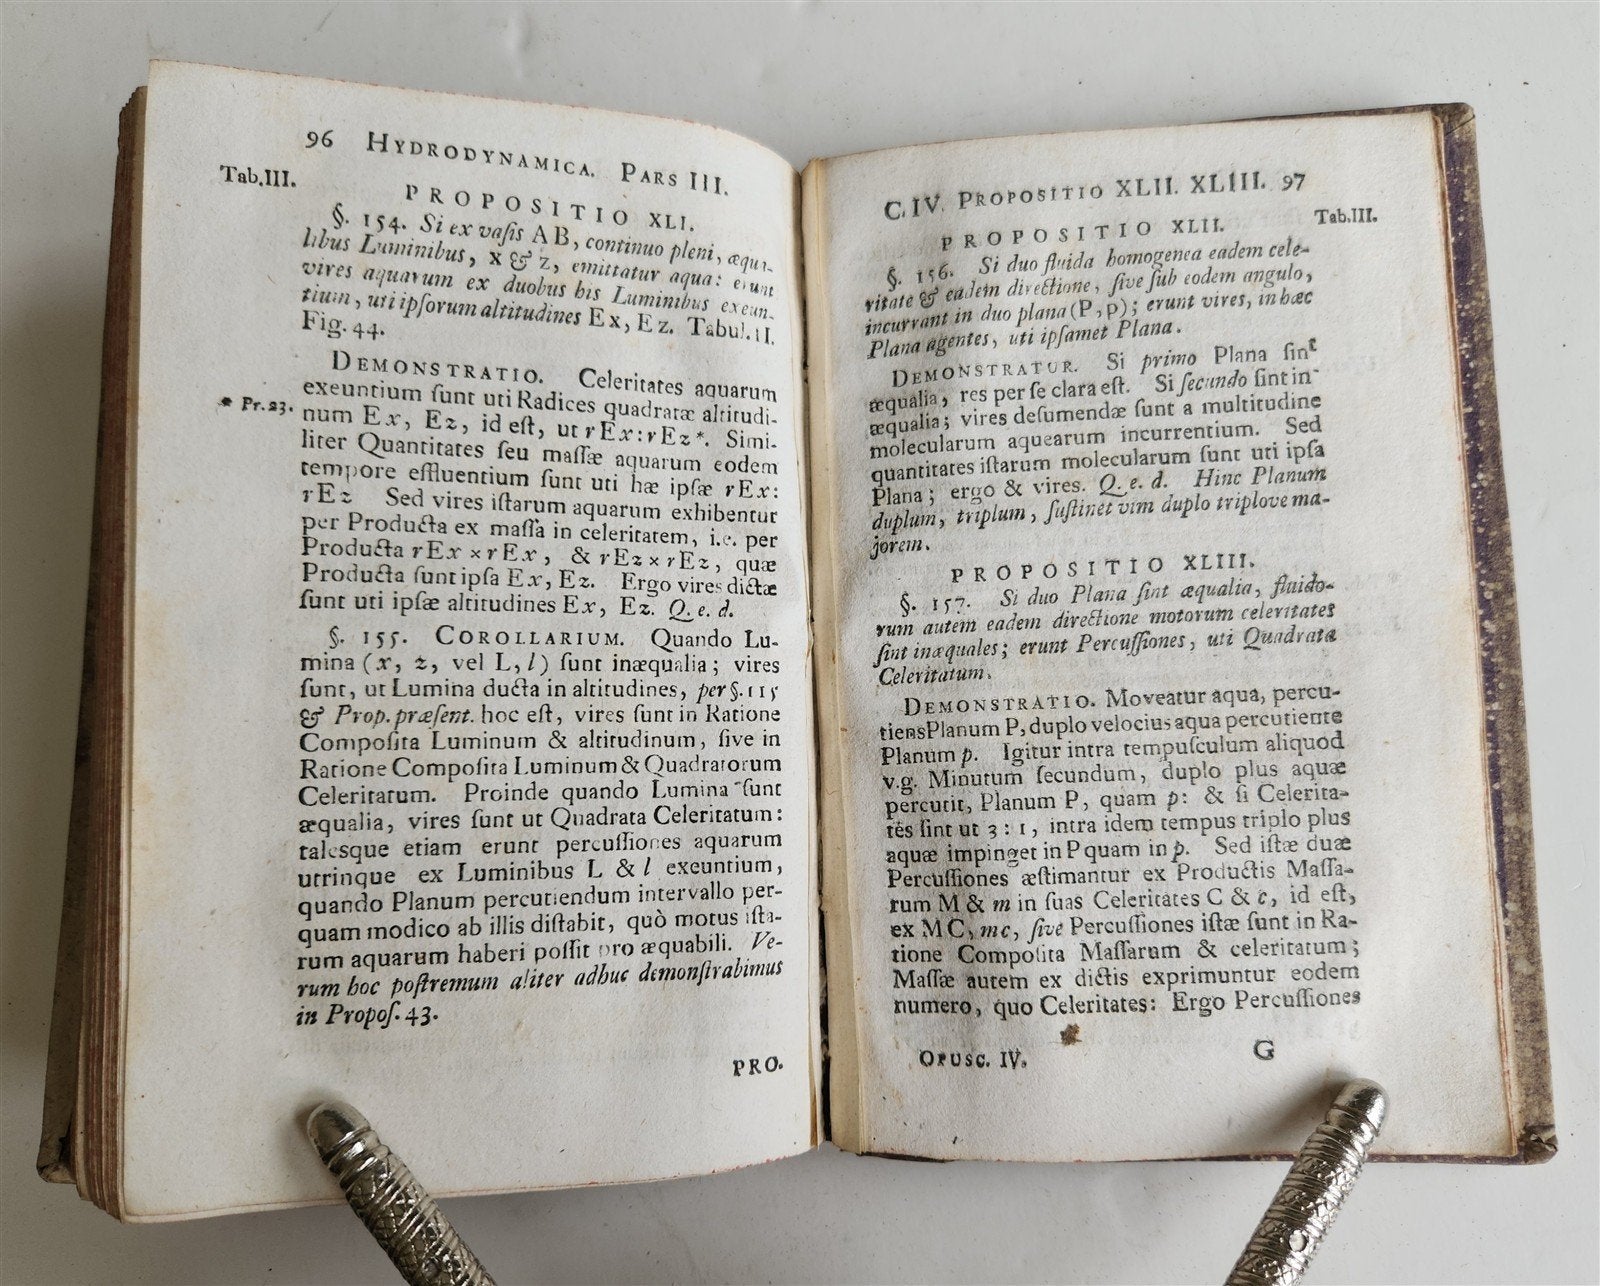 96 HYDRODYNAMICA. PARS III.
Tab.III.
PROPOSITIO XLI.
§. 154. Si ex vasis AB, continuo pleni, æqua-
libus Luminibus, x & z, emittatur aqua: erunt
vires aquarum ex duobus his Luminibus exeun-
tium, uti ipsorum altitudines Ex, Ez. Tabul. II.
Fig. 44.
DEMONSTRATIO. Celeritates aquarum
exeuntium sunt uti Radices quadratæ altitudi-
* Pr.23. num Ex, Ez, id est, ut rEx:rEz*. Simi-
liter Quantitates seu massæ aquarum eodem
tempore effluentium sunt uti hæ ipsæ rEx:
rEz Sed vires istarum aquarum exhibentur
per Producta ex massa in celeritatem, i.e. per
Producta rEx × rEx, & rEz × rEz, quæ
Producta sunt ipsa Ex, Ez. Ergo vires dictæ
sunt uti ipsæ altitudines Ex, Ez. Q. e. d.
§. 155. COROLLARIUM. Quando Lu-
mina (x, z, vel L, l) sunt inæqualia; vires
sunt, ut Lumina ducta in altitudines, per §. 115
& Prop. præsent. hoc est, vires sunt in Ratione
Composita Luminum & altitudinum, sive in
Ratione Composita Luminum & Quadratorum
Celeritatum. Proinde quando Lumina sunt
æqualia, vires sunt ut Quadrata Celeritatum:
talesque etiam erunt percussiones aquarum
utrinque ex Luminibus L & l exeuntium,
quando Planum percutiendum intervallo per-
quam modico ab illis distabit, quò motus ista-
rum aquarum haberi possit pro æquabili. Ve-
rum hoc postremum aliter adhuc demonstrabimus
in Propos. 43.
PRO.
C. IV. PROPOSITIO XLII. XLIII. 97
Tab.III.
PROPOSITIO XLII.
§. 156. Si duo fluida homogenea eadem cele-
ritate & eadem directione, sive sub eodem angulo,
incurrant in duo plana (P, p); erunt vires, in hæc
Plana agentes, uti ipsamet Plana.
DEMONSTRATUR. Si primo Plana sint
æqualia, res per se clara est. Si secundo sint in-
æqualia; vires desumendæ sunt a multitudine
molecularum aquearum incurrentium. Sed
quantitates istarum molecularum sunt uti ipsa
Plana; ergo & vires. Q. e. d. Hinc Planum
duplum, triplum, sustinet vim duplo triplove ma-
jorem.
PROPOSITIO XLIII.
§. 157. Si duo Plana sint æqualia, fluido-
rum autem eadem directione motorum celeritates
sint inæquales; erunt Percussiones, uti Quadrata
Celeritatum.
DEMONSTRATIO. Moveatur aqua, percu-
tiens Planum P, duplo velocius aqua percutiente
Planum p. Igitur intra tempusculum aliquod
v.g. Minutum secundum, duplo plus aquæ
percutit, Planum P, quam p: & si Celerita-
tes sint ut 3 : 1, intra idem tempus triplo plus
aquæ impinget in P quam in p. Sed istæ duæ
Percussiones æstimantur ex Productis Massa-
rum M & m in suas Celeritates C & c, id est,
ex MC, mc, sive Percussiones istæ sunt in Ra-
tione Composita Massarum & celeritatum;
Massæ autem ex dictis exprimuntur eodem
numero, quo Celeritates: Ergo Percussiones
OPUSC. IV. G